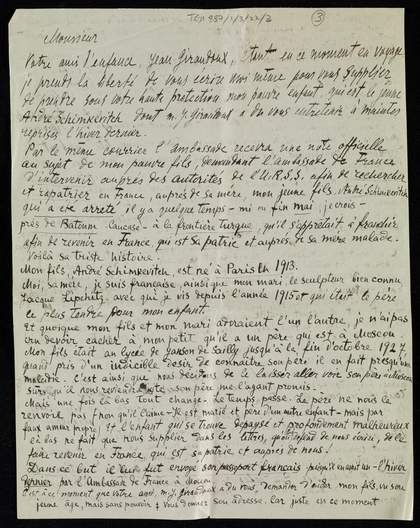 TGA 987/1/3/22/2
③
Monsieur
Votre ami d'enfance, Jean Giraudoux, étant en ce moment en voyage
je prends la liberté de vous ecrire moi même pour vous supplier,
de prendre sous votre haute protection mon pauvre enfant qui est le jeune
André Schimkevitch dont M. J. Giraudoux a dû vous entretenir à maintes
reprises l'hiver dernier.
Par le même courrier l'ambassade recevra une note officielle
au sujet de mon pauvre fils, demandant l'ambassade de France
d'intervenir aupres des autorités de l'U.R.S.S. afin de rechercher
et rapatrier en France, auprès de sa mère, mon jeune fils, André Schimkevitch
qui a été arreté, il y a quelque temps - mi ou fin mai, je crois -
près de Batoum - Caucase - à la frontière turque, qu'il s'apprêtait, à franchir
afin de revenir en France, qui est sa patrie et aupres, de sa mère malade.
Voilà sa triste histoire.
Mon fils, André Schimkevitch, est né à Paris en 1913.
Moi, sa mère, je suis française, ainsi que mon mari, le sculpteur bien connu
Jacque Lipchitz, avec qui je vis depuis l'année 1915 et qui était le père
le plus tendre pour mon enfant.
Et quoique mon fils et mon mari adoraient l'un l'autre, je n'ai pas
cru devoir cacher à mon petit qu'il a un père qui est à Moscou
Mon fils était au lycée de Janson de Sailly jusqu'à la fin d'octobre 1927
quand pris d'un indicible desir de connaître son père il en fait presqu'une
maladie. C'est ainsi que nous décidons de le laisser aller voir son père à Moscou
sûrs qu'il nous reviendra et son père me l'ayant promis.
Mais une fois là bas tout change. Le temps passe. Le père ne nous le
renvoie pas (non qu'il l'aime - Il est marié et père d'un autre enfant - mais par
faux amour propre) et l'enfant qui se trouve depaysé et profondement malheureux
là bas ne fait que nous supplier dans les lettres, de le
faire revenir en France, qui est sa patrie et aupres de nous!
Dans ce but il lui fut envoyé son passeport français - l'hiver
dernier par l'Ambassade de France à Moscou
C'est à ce moment que votre ami, M. J. Giraudoux a dû vous demander d'aider mon fils, vu son
jeune âge, mais sans pouvoir vous donner son adresse. Car juste en ce moment